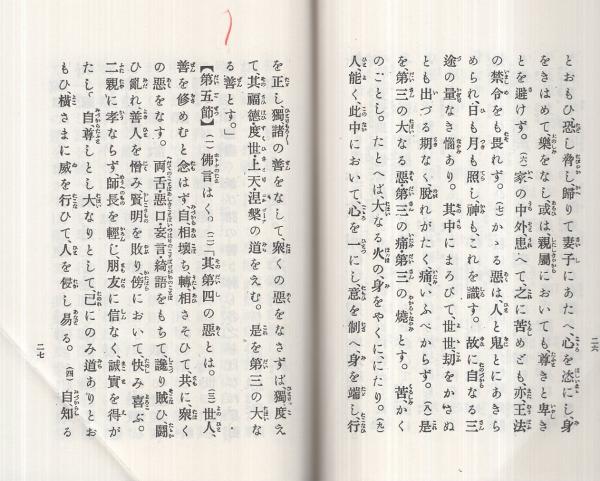 とおもひ恐し脅し歸りて妻子にあたへ、心を恣にし、身
をきはめて、樂をなし、或は親屬においても尊きと卑き
とを避けず。(六)家の中外患へて、之に苦めども、亦王法
の禁令をも畏れず。(七)かゝる惡は人と鬼とにあきら
められ、日も月も照し、神も、これを識す。故に自なる三
途の量なき惱あり。其中にまろびて、世世劫をかさぬ
とも出づる期なく、脫れがたく、痛いふべからず。(八)是
を第三の大なる惡、第三の痛、第三の燒とす。苦かく
のごとし。たとへば大なる火の、身をやくに、にたり。(九)
人能く、此中において、心を一にし、意を制へ身を端し、行
二六
を正し、獨諸の善をなして、衆くの惡をなさずば、獨度え
て、其福德、度世、上天、涅槃の道をえむ。是を第三の大な
る善とす。」
【第五節】(一)佛言はく。(二)其第四の惡とは。(三)世人、
善を修めむと念はず、自相壞ち轉相さそひて、共に衆く
の惡をなす。兩舌、惡口、妄言、綺語をもちて、讒り賊ひ、鬪
ひ亂れ、善人を憎み、賢明を敗り、傍において、快み喜ぶ。
二親に孝ならず、師長を輕し、朋友に信なく、誠實を得が
たし。自尊しとし、大なりとして、己にのみ道ありとお
もひ、橫さまに威を行ひて、人を侵し易る。(四)自知る
二七